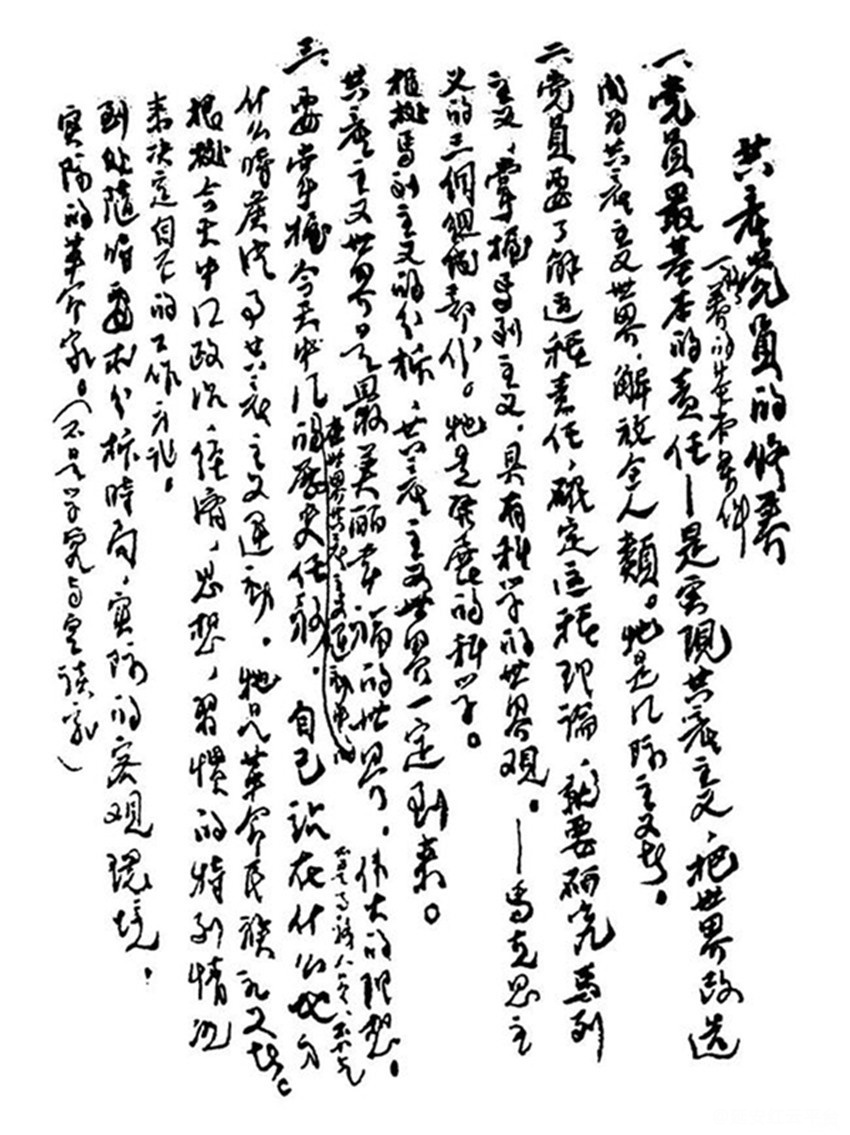 共产党员的修养
修养的基本条件
一、党员最基本的责任—是实现共产主义,把世界改造
成为共产主义世界,解放全人类。他是国际主义者。
二、党员要了解这种责任,确定这种理论,就要研究马列
主义,掌握马列主义,具有科学的世界观。—马克思主
义的三个组成部分。他是发展的科学。
根据马列主义的分析,共产主义世界一定到来。
共产主义世界是最美丽幸福的世界,伟大的理想。
在世界共产主义运动中的
三、要掌握今天中国的历史任务。自己站在什么地方
什么时候从事共产主义运动。他是革命民族主义者。
根据今天中国政治,经济,思想,习惯的特别情况
来决定自己的工作方针。
到处随时要求分析时局,实际的客观环境,
实际的革命家。(不是学究与空谈家)